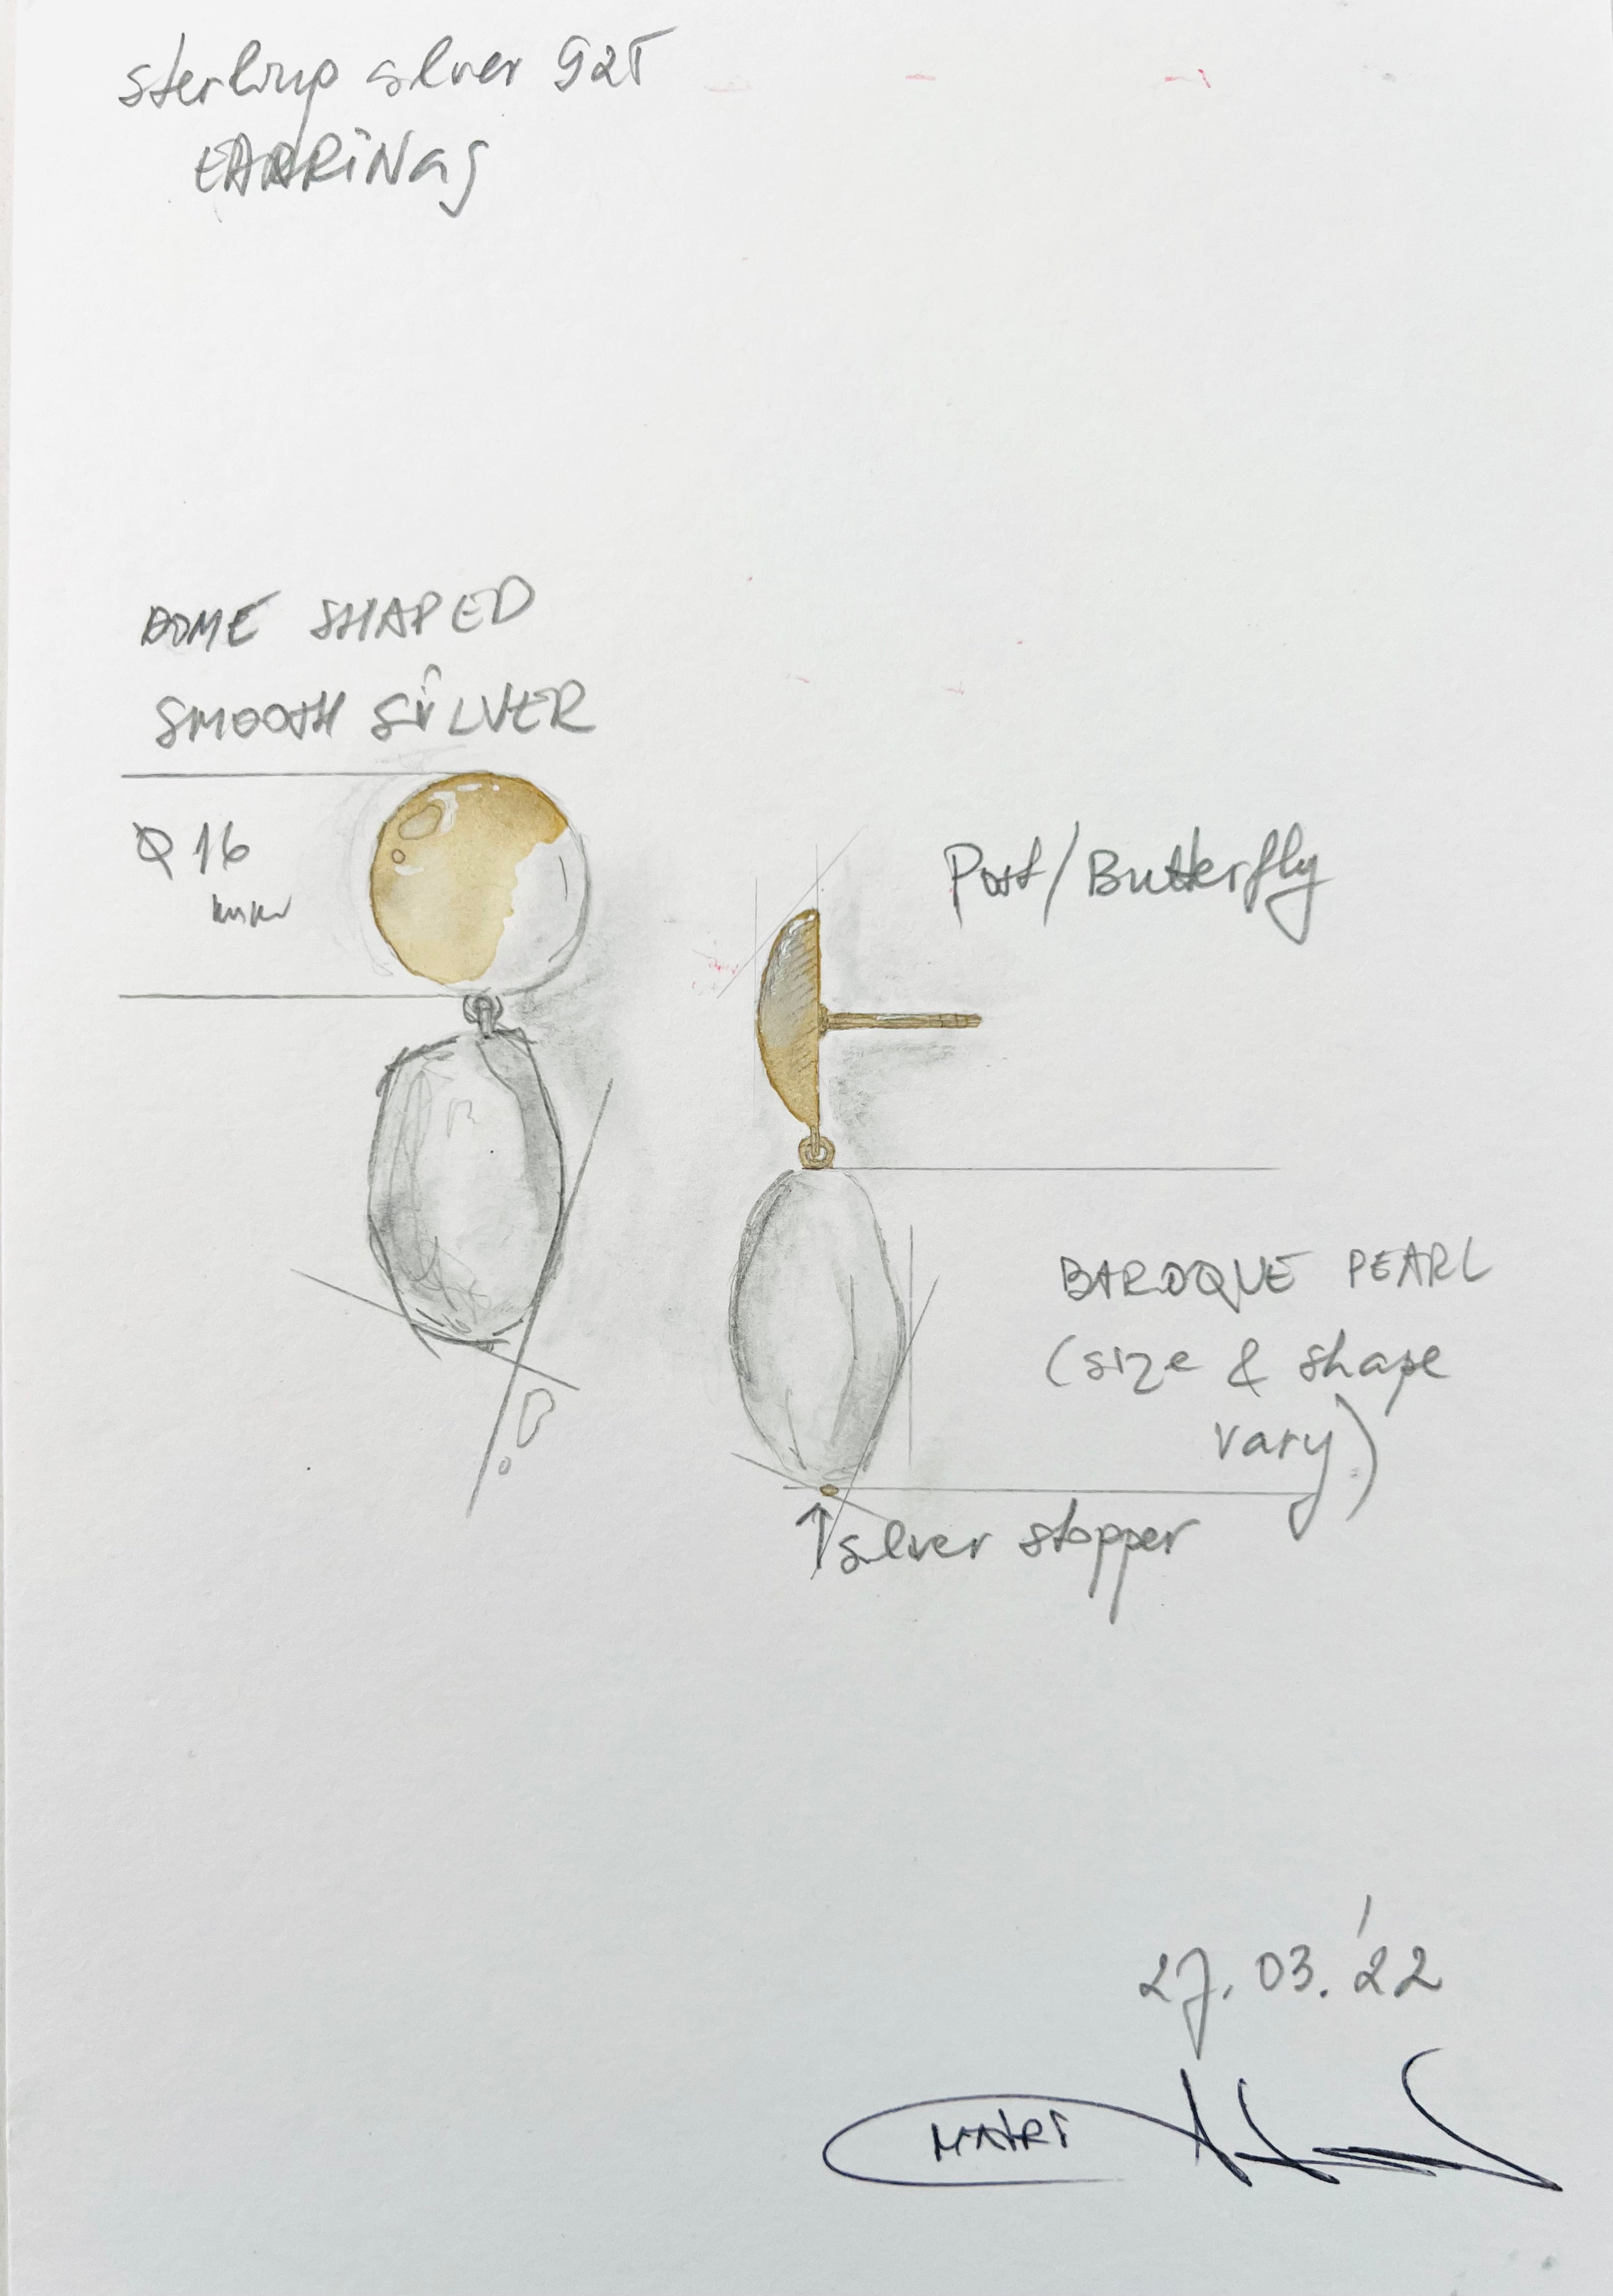 sterling silver 925
EARRINGS
DOME SHAPED
SMOOTH SILVER
Ø 16
mm
Post/Butterfly
BAROQUE PEARL
(size & shape
vary)
↑ silver stopper
27.03.'22